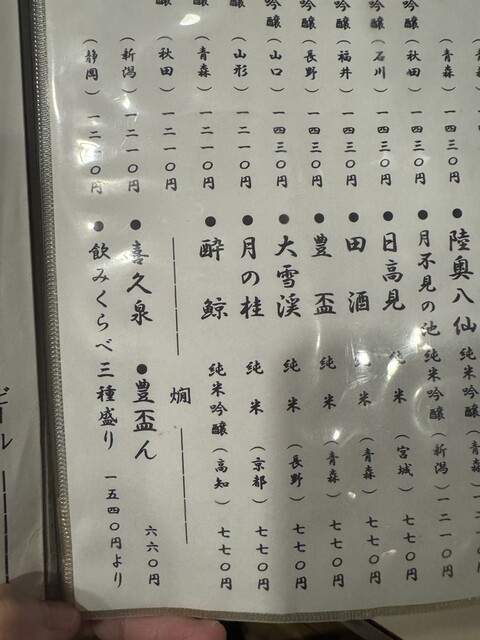 青森
吟醸（秋田）一四三〇円
吟醸（石川）一四三〇円
吟醸（福井）一四三〇円
吟醸（長野）一四三〇円
吟醸（山口）一四三〇円
吟醸（山形）一二一〇円
（青森）一二一〇円
醸（秋田）一二一〇円
（新潟）一二一〇円
（静岡）一二一〇円
（青森）一四三〇円
●陸奥八仙 純米吟醸
●月不見の池 純米吟醸（新潟）一二一〇円
●日高見 純米（宮城）七七〇円
●田酒 純米（青森）七七〇円
●豊盃 純米（青森）七七〇円
●大雪渓 純米（長野）七七〇円
●月の桂 純米（京都）七七〇円
●酔鯨 純米吟醸（高知）七七〇円
燗
●喜久泉 ●豊盃ん 六六〇円
●飲みくらべ三種盛り 一五四〇円より
ビール